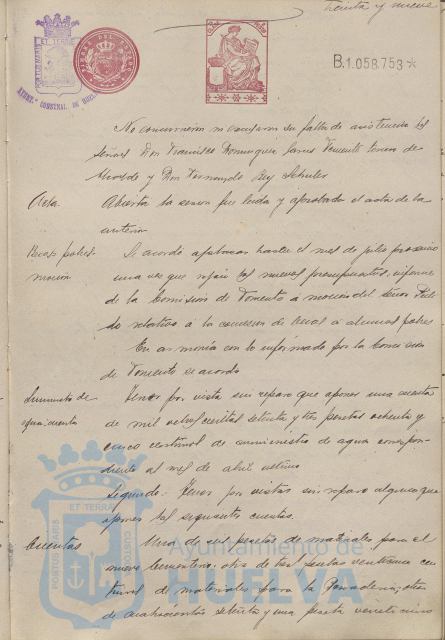 treinta y nueve
PORTUS MARIS ET TERRAE CUSTODIA
AYUNT.º CONSTNAL. DE HUELVA
B.1.058.753*
No concurrieron ni excusaron su falta de asistencia los
señores Don Francisco Dominguez Teniente tercero de
Alcalde y Don Fernando Rey Schuler
Acta. Abierta la sesion fue leida y aprobada el acta de la
anterior
Becas patri-
monion Se acordó aplazar hasta el mes de julio proximo
una vez que rijan los nuevos presupuestos, informe
de la Comision de Fomento a mocion del señor
do relativo a la concesion de becas a alumnos pobres
En armonia con lo informado por la Comision
de Fomento se acordo
Suministro de
agua: cuenta Tener por vista sin reparo que oponer una cuenta
de mil ochocientas setenta y tres pesetas ochenta y
cinco centimos de suministro de agua correspon-
diente al mes de abril ultimo
Segundo: Tener por vistas sin reparo alguno que
oponer las siguientes cuentas.
Cuentas Una de mil pesetas de materiales para el
nuevo Cementerio: otra de tres pesetas veinticinco cen-
timos de materiales para la Panaderia; otra
de cuatrocientas setenta y una peseta veinticinco
PORTUS MARIS ET TERRAE CUSTODIA
Ayuntamiento de
HUELVA